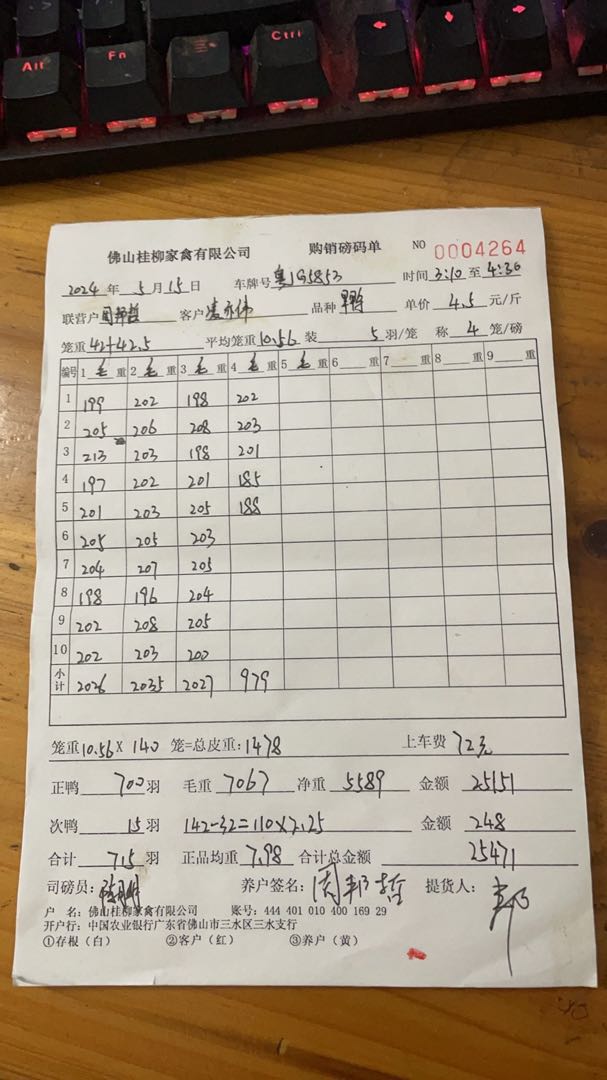 Alt Fn Ctrl
佛山桂柳家禽有限公司 购销磅码单 NO 0004264
2024 年 5 月 15 日 车牌号 粤JG5853 时间 3:10 至 4:30
联营户 周邦哲 客户 凌亦伟 品种 单价 4.5 元/斤
笼重 42+42.5 平均笼重 10.56 装 5 羽/笼 称 4 笼/磅
编号 1 毛 重 2 毛 重 3 毛 重 4 毛 重 5 毛 重 6 重 7 重 8 重 9 重
1 199 202 198 202
2 205 206 208 203
3 213 203 198 201
4 197 202 201 185
5 201 203 205 188
6 205 205 203
7 204 207 205
8 198 196 204
9 202 208 205
10 202 203 200
小计 2026 2035 2027 979
笼重 10.56 X 140 笼=总皮重: 1478 上车费 72元
正鸭 700 羽 毛重 7067 净重 5589 金额 25151
次鸭 15 羽 142-32=110×2.25 金额 248
合计 715 羽 正品均重 7.98 合计总金额 25471
司磅员: 养户签名: 周邦哲 提货人:
户 名: 佛山桂柳家禽有限公司 账号: 444 401 010 400 169 29
开户行: 中国农业银行广东省佛山市三水区三水支行
①存根（白） ②客户（红） ③养户（黄）